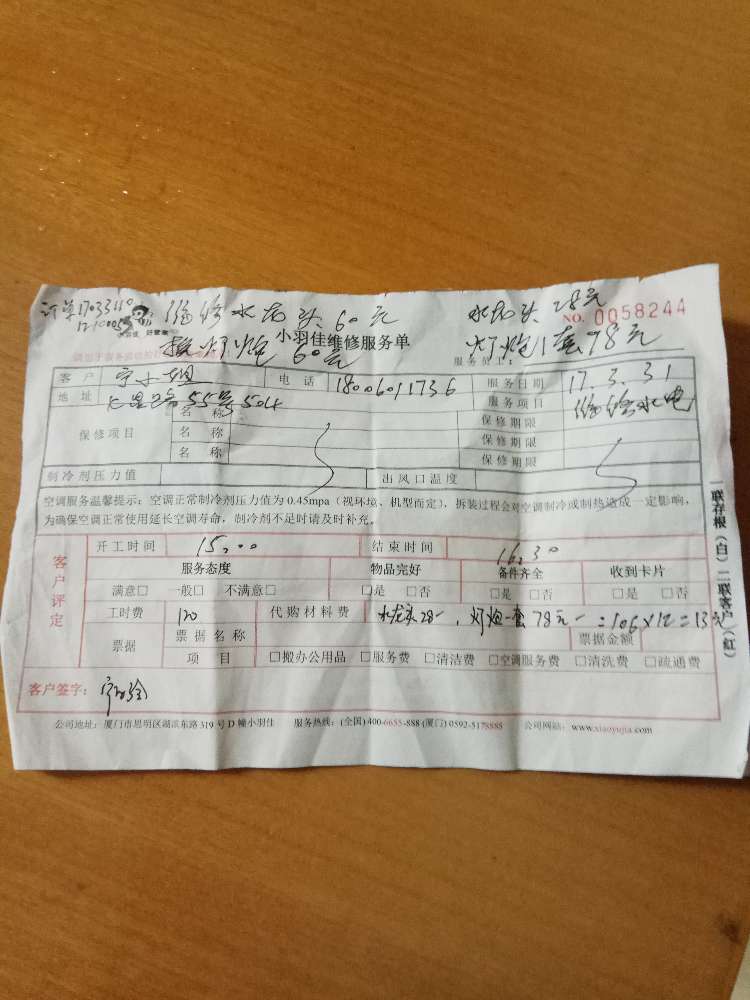 订单17033110 维修水龙头60元 水龙头28元
小羽佳 好管家 NO. 0058244
换灯炮60元 小羽佳维修服务单 灯炮1套78元
服务员工：
客户 宁小姐 电话 18006011736 服务日期 17.3.31
地址 55号504 服务项目 维修水电
保修项目 名称 保修期限
名称 保修期限
名称 保修期限
制冷剂压力值 出风口温度
空调服务温馨提示：空调正常制冷剂压力值为 0.45mpa（视环境、机型而定），拆装过程会对空调制冷或制热造成一定影响，
为确保空调正常使用延长空调寿命，制冷剂不足时请及时补充。
客户评定
开工时间 15:00 结束时间 16:30
服务态度 物品完好 备件齐全 收到卡片
满意□ 一般□ 不满意□ □是 □否 □是 □否 □是 □否
工时费 120 代购材料费 水龙头28－，灯炮一套78元－＝106
票据 票据名称 票据金额
项目 □搬办公用品 □服务费 □清洁费 □空调服务费 □清洗费 □疏通费
客户签字：
公司地址：厦门市思明区湖滨东路 319 号 D 幢小羽佳 服务热线：(全国) 400-6655-888 (厦门) 0592-5178885 公司网站：www.xiaoyujia.com
一联存根（白） 二联客户（红）